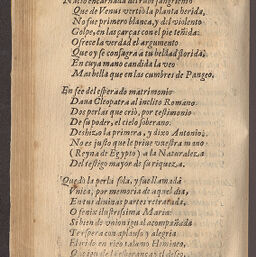 Que de Venus vertiò la planta herida,
No fue primero blanca, y del violento
Golpe, en las çarças con el pie teñida:
Ofrece la verdad el argumento
Que oy se consagrò a tu beldad florida,
En cuya mano candida la veo
Mas bella que en las cumbres de Pangeo.
En fee del esperado matrimonio
Dana Cleopatra al inclito Romano
Dos perlas que criò, por testimonio
De su poder, el cielo soberano:
Deshizo la primera, y dixo Antonio:
No es justo que le prive vuestra mano
(Reyna de Egypto) a la Naturaleza
Del testigo mayor de su riqueza.
Quedò la perla sola, y fue llamada
Vnica, por memoria de aquel dia,
En tus diuinas partes retratada,
O fenix ilustrissima Maria:
Si bien de vnion igual acompañada